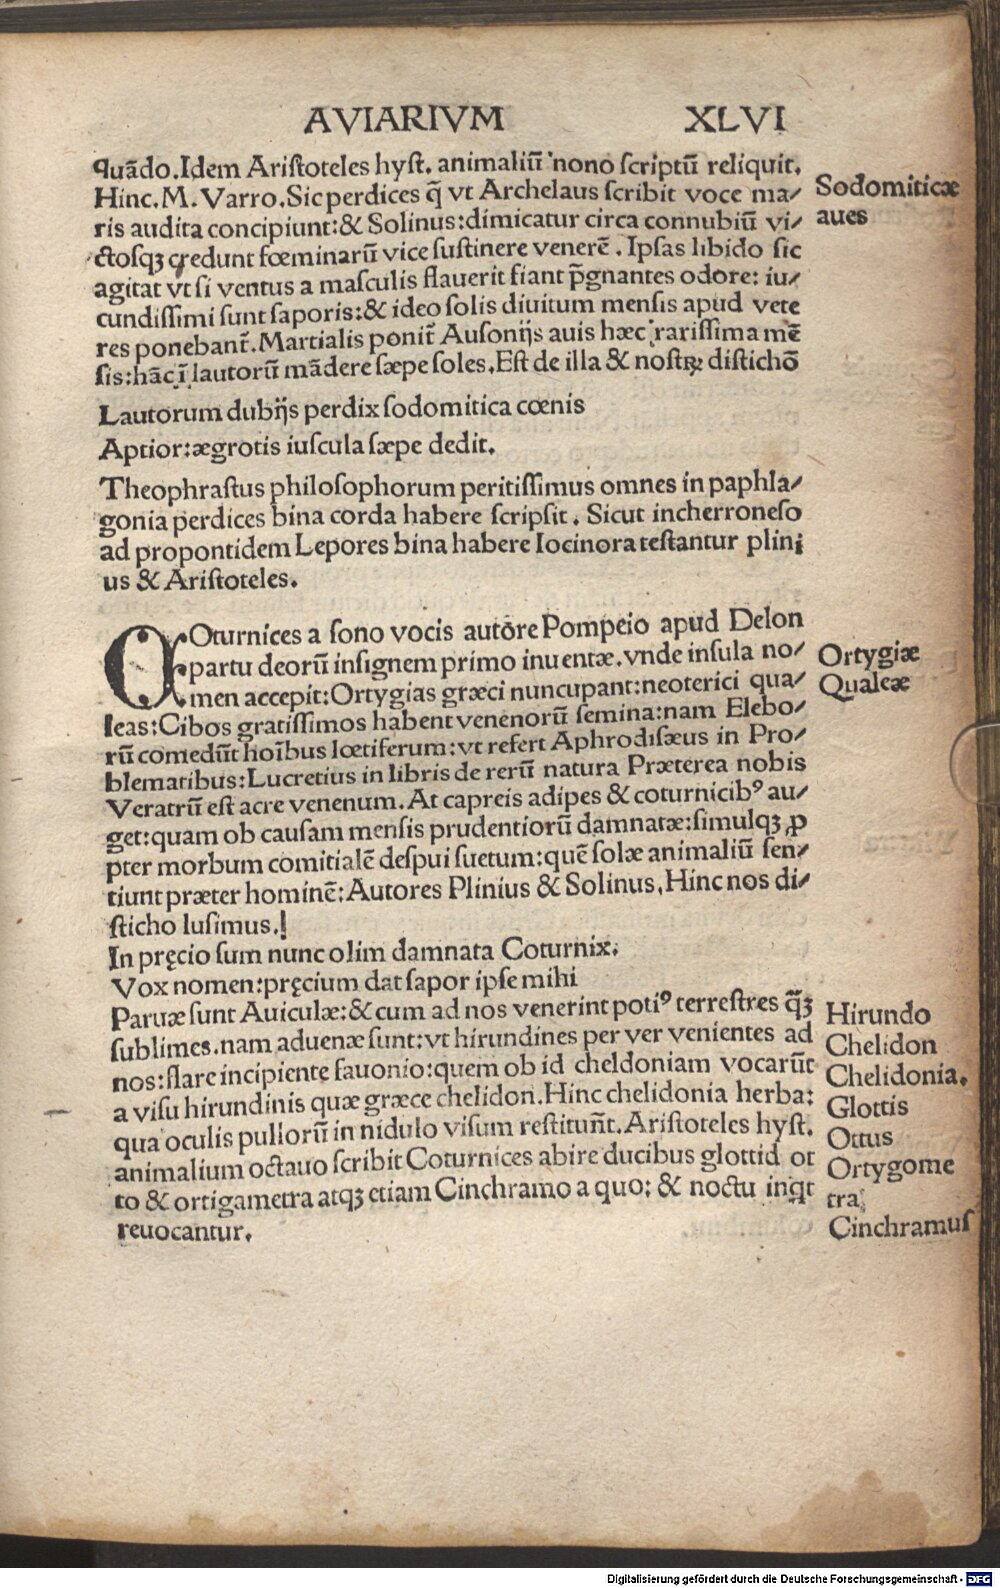 AVIARIVM XLVI
quãdo. Idem Ariſtoteles hyſt. animaliũ nono ſcriptũ reliquit.
Hinc. M. Varro. Sic perdices q̃ vt Archelaus ſcribit voce ma⸗
ris audita concipiunt: & Solinus: dimicatur circa connubiũ vi⸗
ctosqꝫ credunt fœminarũ vice ſuſtinere venerẽ. Ipſas libido ſic
agitat vt ſi ventus a maſculis flauerit fiant p̃gnantes odore: iu⸗
cundiſſimi ſunt ſaporis: & ideo ſolis diuitum menſis apud vete
res ponebant᷑. Martialis ponit᷑ Auſonijs auis hæc rariſſima mẽ
ſis: hãc ĩ lautorũ mãdere ſæpe ſoles. Eſt de illa & noſtꝝ diſtichõ
Lautorum dubijs perdix ſodomitica cœnis
Aptior: ægrotis iuſcula ſæpe dedit.
Theophraſtus philoſophorum peritiſſimus omnes in paphla⸗
gonia perdices bina corda habere ſcripſit. Sicut incherroneſo
ad propontidem Lepores bina habere Iocinora teſtantur plini
us & Ariſtoteles.
COturnices a ſono vocis autore Pompeio apud Delon
partu deorũ inſignem primo inuentæ. vnde inſula no⸗
men accepit: Ortygias græci nuncupant: neoterici qua⸗
leas: Cibos gratiſſimos habent venenorũ ſemina: nam Elebo⸗
rũ comedũt hoĩbus lœtiferum: vt refert Aphrodiſæus in Pro⸗
blematibus: Lucretius in libris de rerũ natura Præterea nobis
Veratrũ eſt acre venenum. At capreis adipes & coturnicibꝰ au⸗
get: quam ob cauſam menſis prudentiorũ damnatæ: ſimulqꝫ ꝓ
pter morbum comitialẽ deſpui ſuetum: quẽ ſolæ animaliũ ſen⸗
tiunt præter hominẽ: Autores Plinius & Solinus. Hinc nos di⸗
ſticho luſimus.
In pręcio ſum nunc olim damnata Coturnix.
Vox nomen: pręcium dat ſapor ipſe mihi
Paruæ ſunt Auiculæ: & cum ad nos venerint potiꝰ terreſtres q̃ꝫ
ſublimes. nam aduenæ ſunt: vt hirundines per ver venientes ad
nos: flare incipiente fauonio: quem ob id cheldoniam vocarũt
a viſu hirundinis quæ græce chelidon. Hinc chelidonia herba:
qua oculis pullorũ in nidulo viſum reſtituñt. Ariſtoteles hyſt.
animalium octauo ſcribit Coturnices abire ducibus glottid ot
to & ortigametra atqꝫ etiam Cinchramo a quo: & noctu inq̇t
reuocantur.
Sodomiticæ
aues
Ortygiæ
Qualeæ
Hirundo
Chelidon
Chelidonia.
Glottis
Ottus
Ortygome
tra
Cinchramuſ
Digitalisierung gefördert durch die Deutsche Forschungsgemeinschaft - DFG